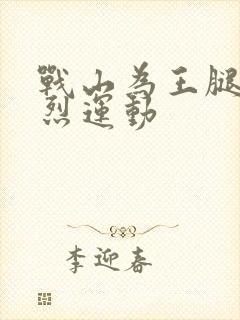 戰山為王腿
烈運動
李迎春